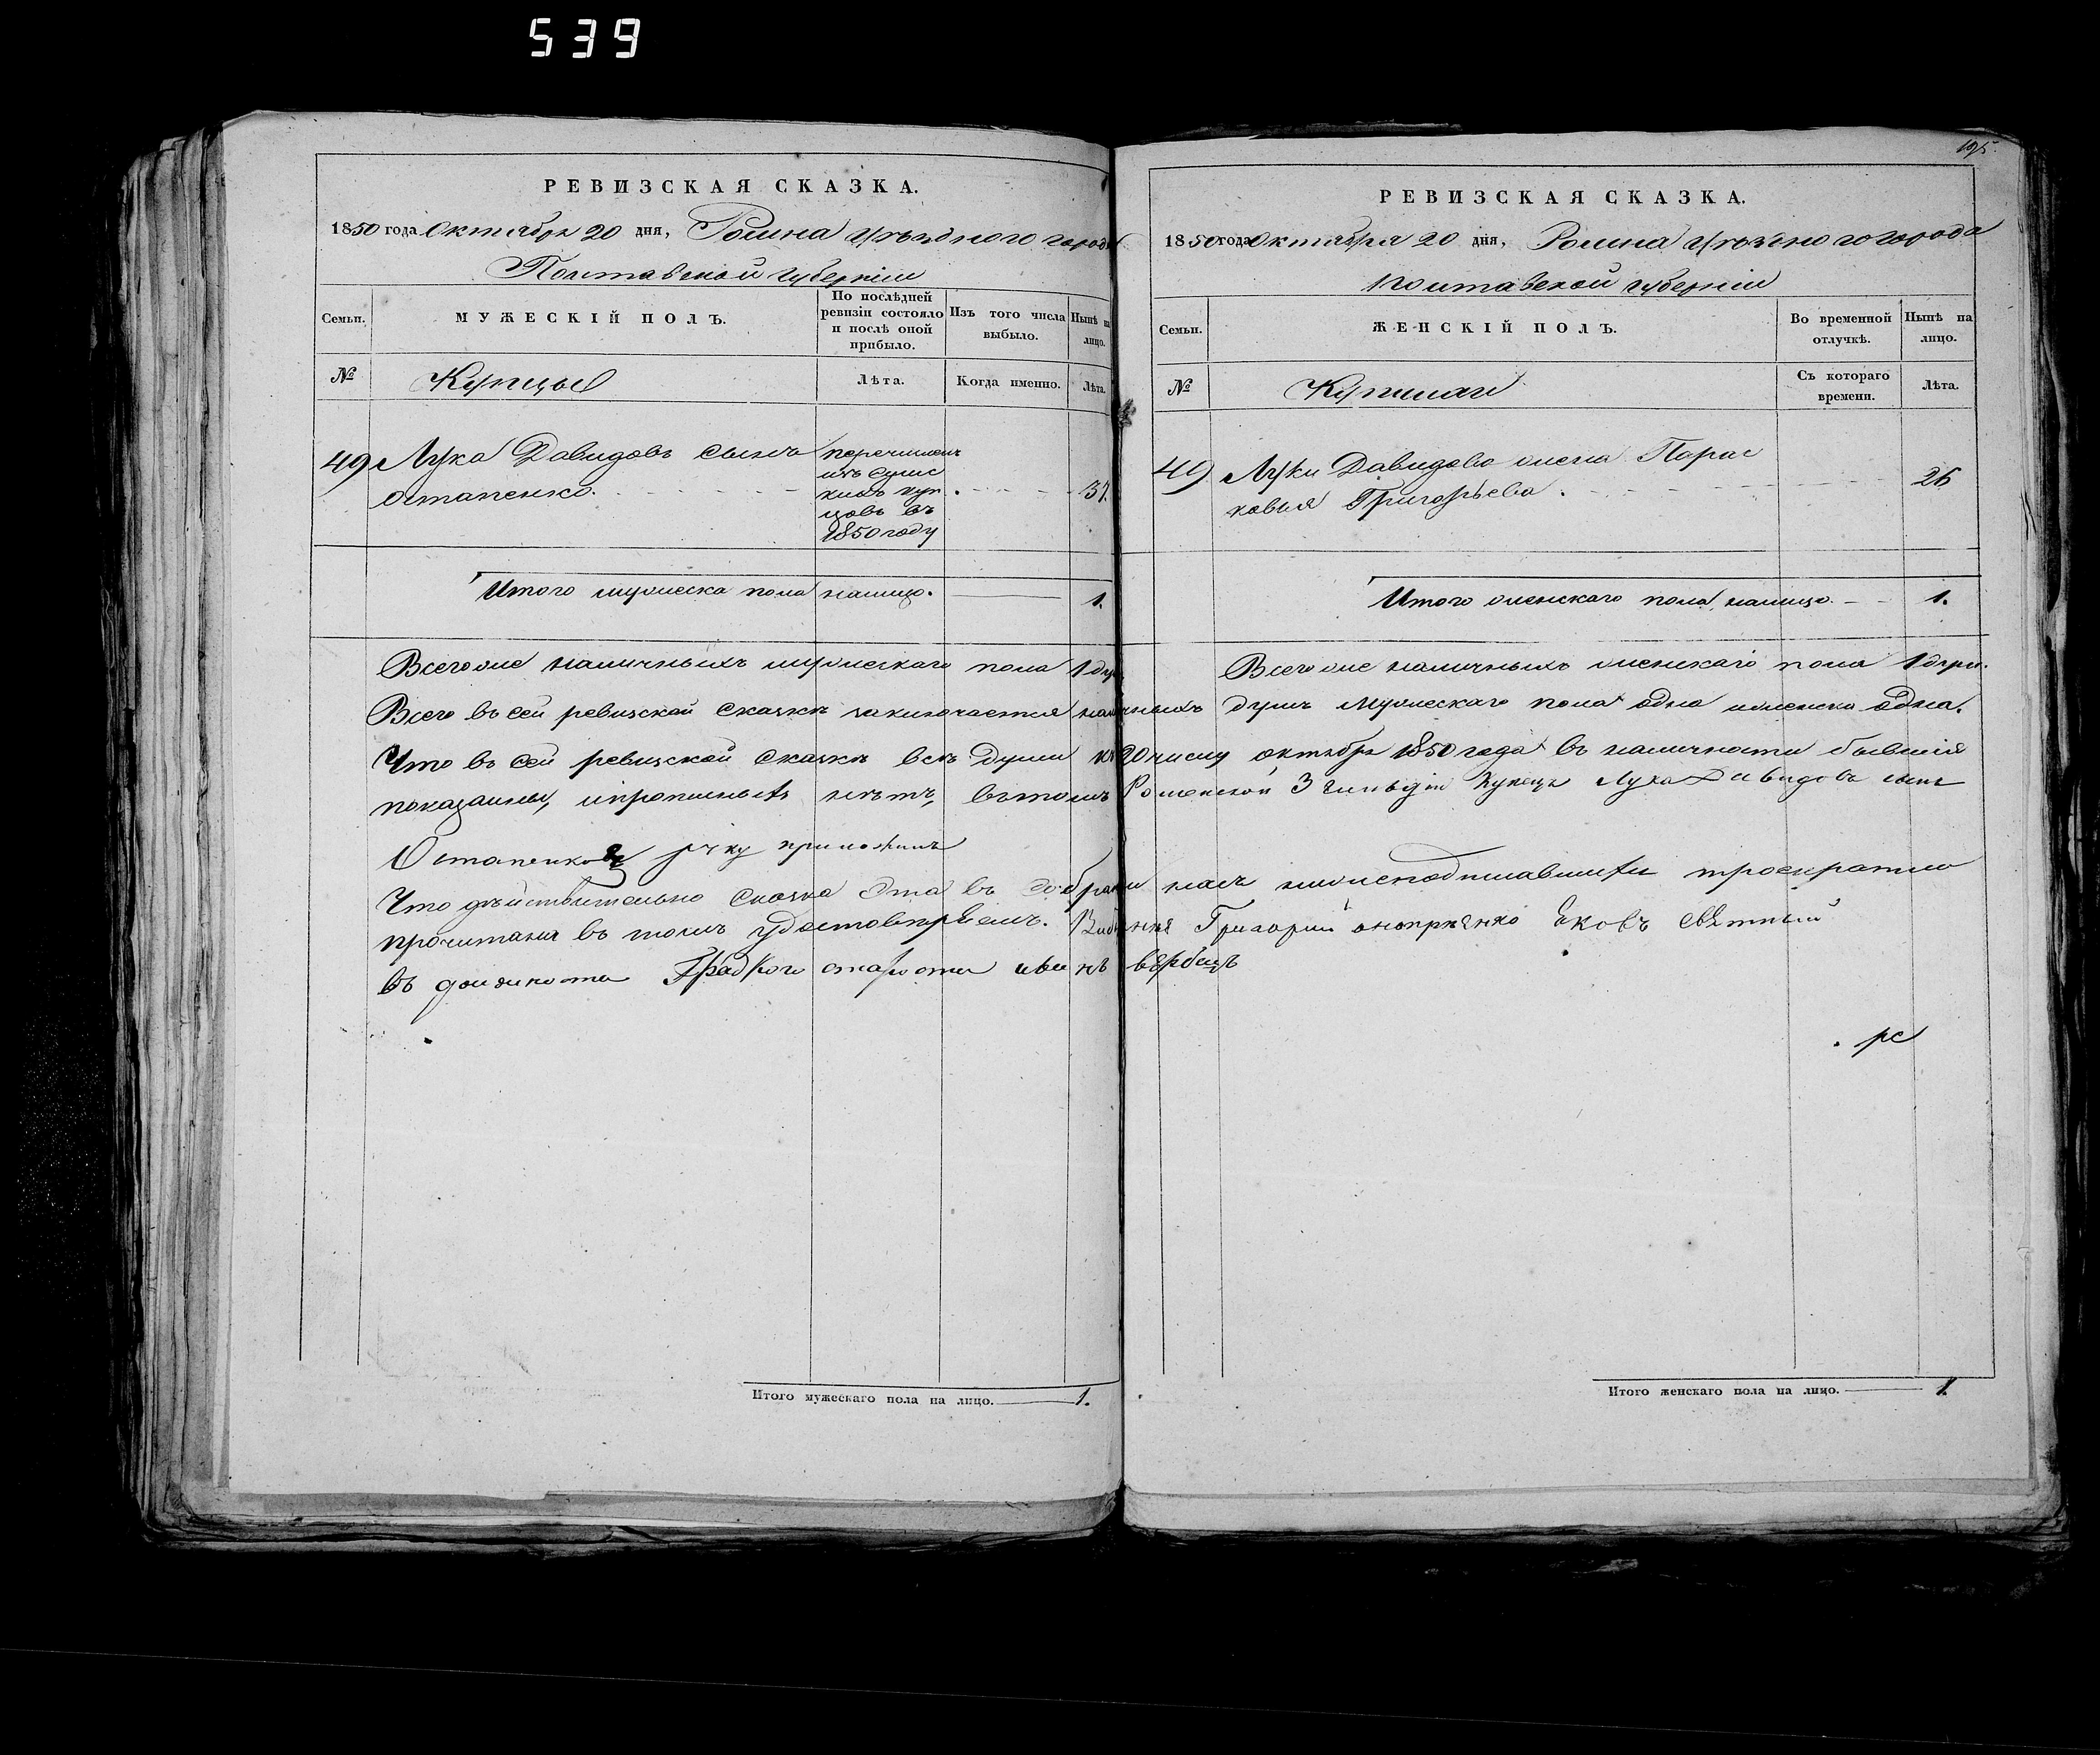 539
РЕВИЗСКАЯ СКАЗКА.
1850 года Октября 20 дня, Ромна уѣзднаго города
Полтавской губерніи
Семьи.
МУЖЕСКІЙ ПОЛЪ.
По послѣдней ревизіи состояло и послѣ оной прибыло.
Изъ того числа выбыло.
Нынѣ на лицо.
№
Купцы
Лѣта.
Когда именно.
Лѣта.
49 Лука Давидовъ сынъ
Остапенко.
перечисленъ
изъ Сумс
кихъ куп
цовъ въ
1850 году
37.
Итого мужеска пола налицо. 1.
195.
РЕВИЗСКАЯ СКАЗКА.
1850 года Октября 20 дня, Ромна уѣзднаго города
Полтавской губерніи
Семьи.
ЖЕНСКІЙ ПОЛЪ.
Во временной отлучкѣ.
Нынѣ на лицо.
№
Съ котораго времени.
Лѣта.
49 Луки Давидова жена Парас
ковья Григорьева.
26
Итого женскаго пола, налицо. 1.
Всего же наличныхъ мужескаго пола 1 душ
Всего же наличныхъ женскаго пола 1 душ.
Всего въ сей ревизской сказкѣ заключается наличныхъ душъ мужескаго пола одна и женска одна.
Что въ сей ревизской сказкѣ всѣ души къ 20 числу октября 1850 года въ наличности бывшія
показаны, и прописныхъ нѣтъ, въ томъ Роменской 3 гильдіи купецъ Лука Давидовъ сынъ
Остапенковъ руку приложилъ
Что дѣйствительно сказка эта въ собрании насъ нижеподписавшихся троекратно
прочитана въ томъ удостовѣряемъ. Григорий Яковъ
въ должности Градкого старосты
рс
Итого мужескаго пола на лицо. 1.
Итого женскаго пола на лицо. 1.